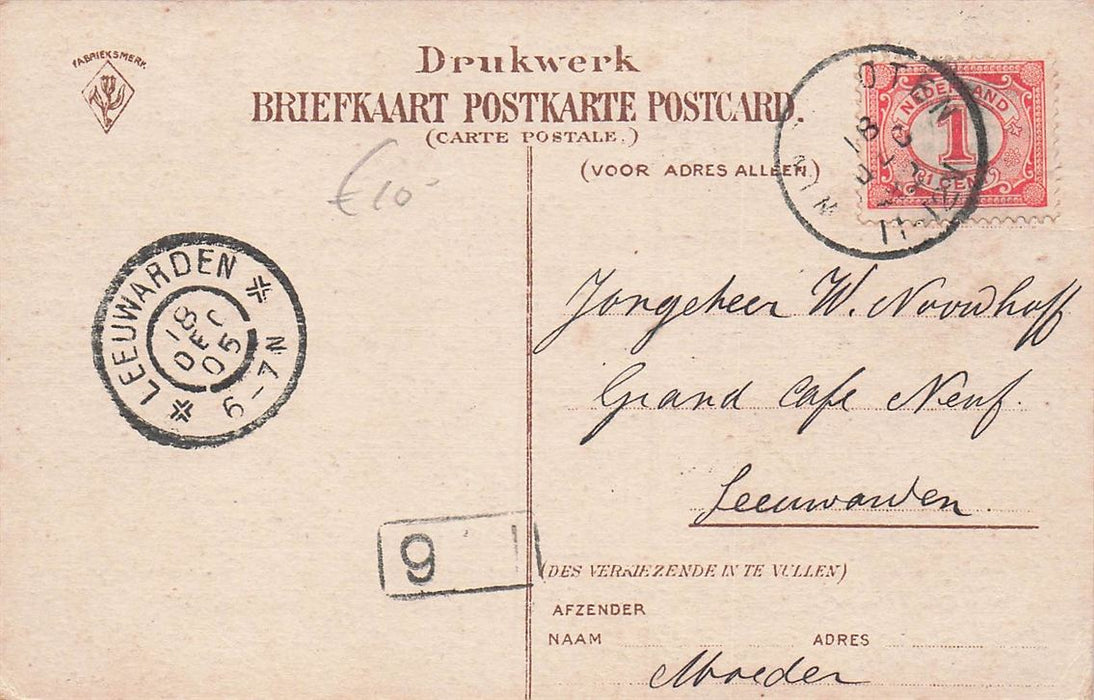 FABRIEKSMERK.
Drukwerk
BRIEFKAART POSTKARTE POSTCARD.
(CARTE POSTALE.)
(VOOR ADRES ALLEEN.)
€10-
NEDERLAND
1
1 CENT
18 DEC
LEEUWARDEN
18
DEC
05
6-7N
Jongeheer W. Noordhoff
Grand Café Neuf.
Leeuwarden
9
(DES VERKIEZENDE IN TE VULLEN)
AFZENDER
NAAM ADRES
Moeder